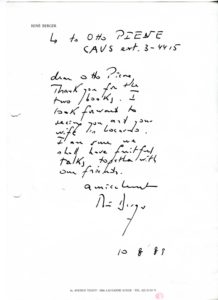 RENÉ BERGER
to Otto PIENE
CAVS ext. 3-4415
dear Otto Piene,
Thank you for the
two books. I
look forward to
seeing you and your
wife in Locarno.
I am sure we
shall have fruitful
talks, together with
our friends.
amicalement
René Berger
10 8 83